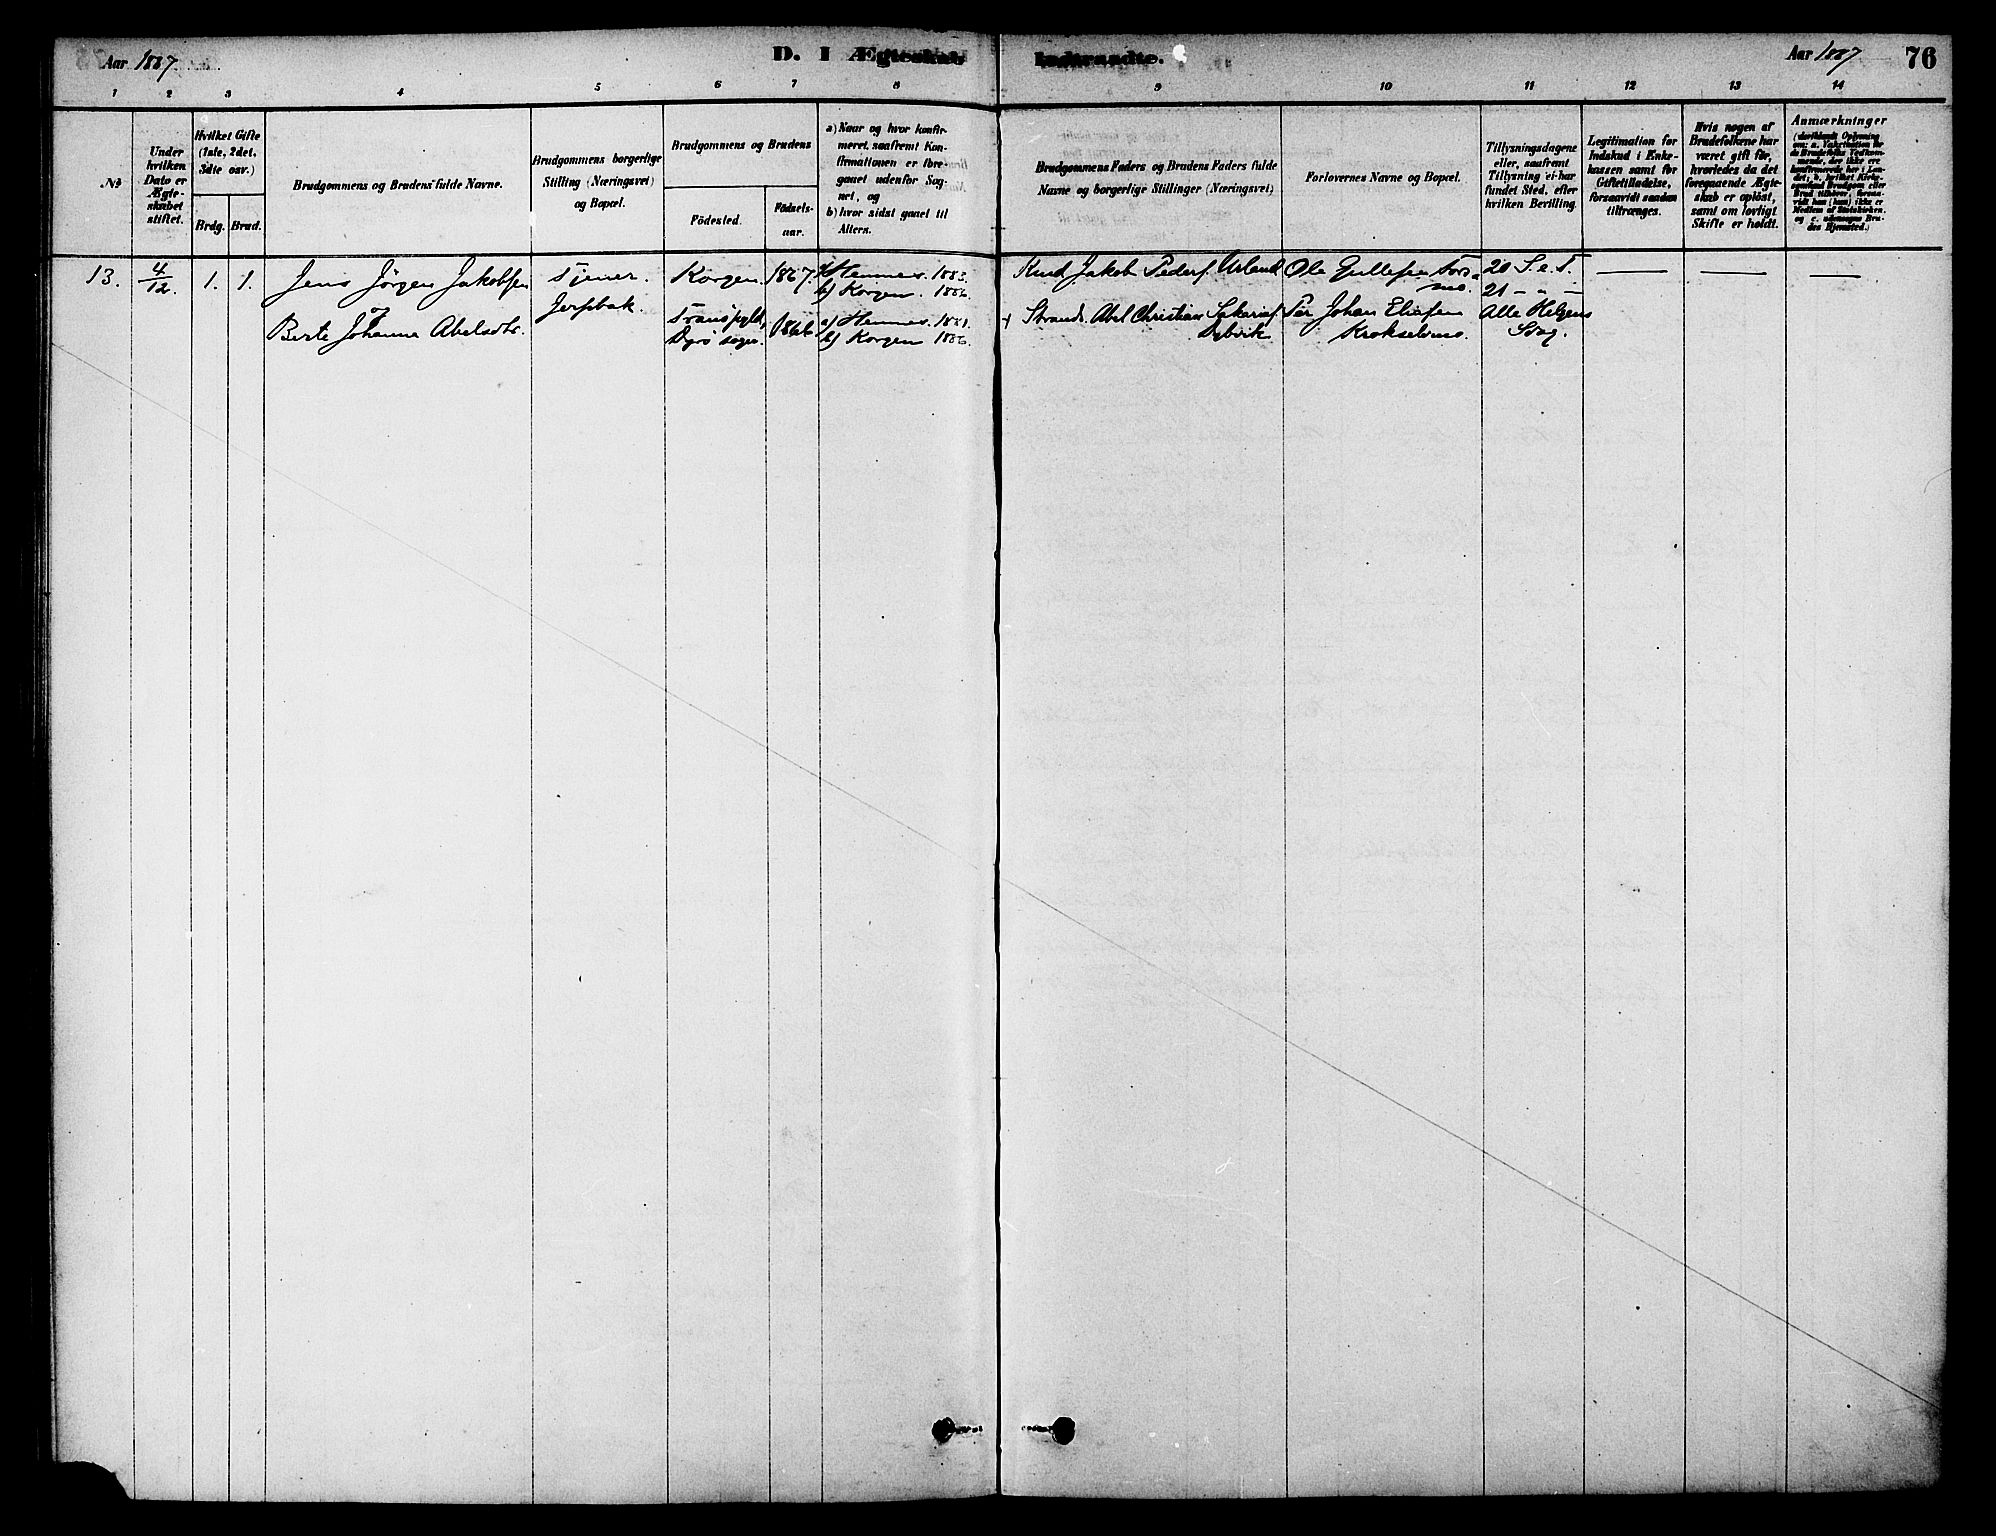 Aar 1887.
D. I Ægteskab
Indtraadte.
Aar 1887
76
1 2 3 4 5 6 7 8 9 10 11 12 13 14
No
Under hvilken Dato er Ægteskabet stiftet.
Hvilket Gifte (1ste, 2det, 3die osv.)
Brdg. Brud.
Brudgommens og Brudens fulde Navne.
Brudgommens borgerlige Stilling (Næringsvei) og Bopæl.
Brudgommens og Brudens
Födested.
Födselsaar.
a) Naar og hvor konfirmeret, saafremt Konfirmationen er foregaaet udenfor Sognet, og
b) hvor sidst gaaet til Alters.
Brudgommens Faders og Brudens Faders fulde Navne og borgerlige Stillinger (Næringsvei)
Forlovernes Navne og Bopæl.
Tillysningsdagene eller, saafremt Tillysning ei har fundet Sted, efter hvilken Bevilling.
Legitimation for Indskud i Enkekassen samt for Giftetilladelse, forsaavidt saadan tiltrænges.
Hvis nogen af Brudefolkene har været gift før, hvorledes da det foregaaende Ægteskab er opløst, samt om lovligt Skifte er holdt.
Anmærkninger
13. 4/12. 1. 1. Jens Jörgen Jakobsen Tjener. Korgen. 1867. a/ Hemnes. 1883. Knud Jakob Peders. Ole Gullesen Forsmo. 20 S. e. T.
b/ Korgen. 1886. 21 - " -
Berte Johanne Abelsdtr. 1866 a/ Hemnes. 1881. Strand. Abel Christian Per Johan Eliasen Alle Helgens
b/ Korgen 1886. Krokselvmo. Søg.